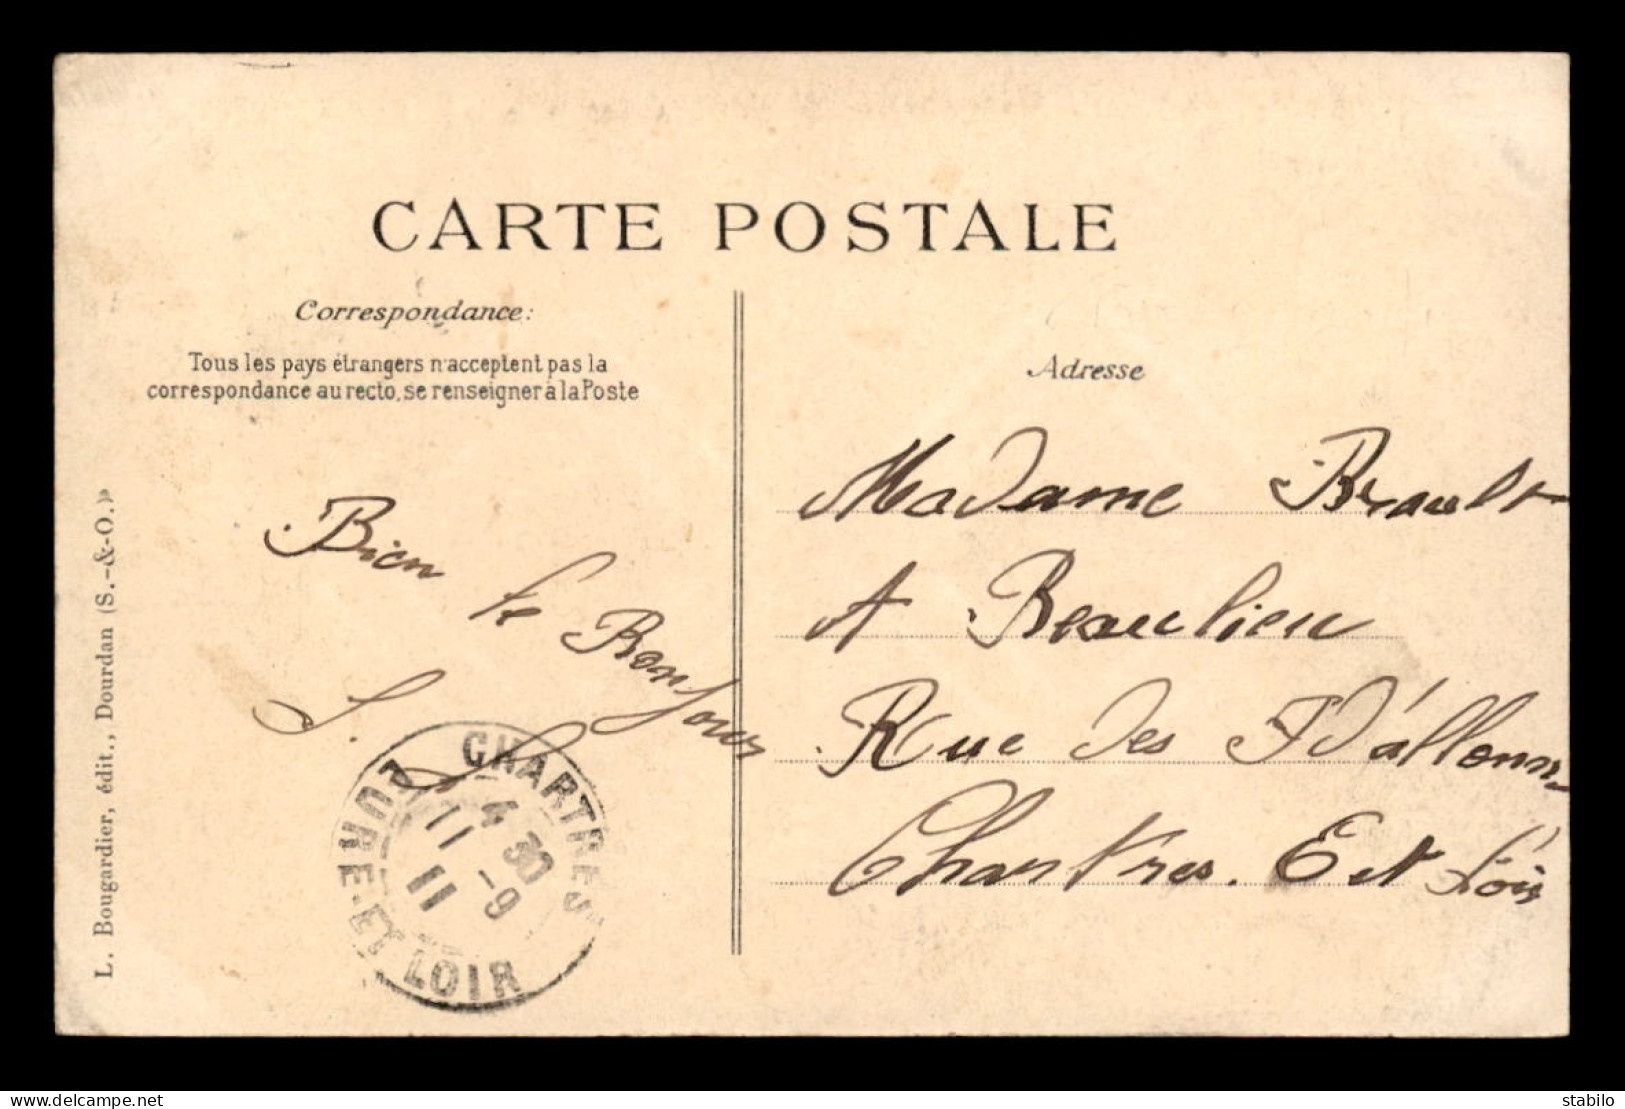 CARTE POSTALE
Correspondance:
Tous les pays étrangers n'acceptent pas la
correspondance au recto, se renseigner à la Poste
Bien le Bonjour
L. Bougardier, édit., Dourdan (S.-&-O.)»
CHARTRES
4 30
11 -9
11
EURE-ET-LOIR
Adresse
Madame Brault
A Beaulieu
Rue des
Chartres. E et Loir
delcampe.net
stabilo